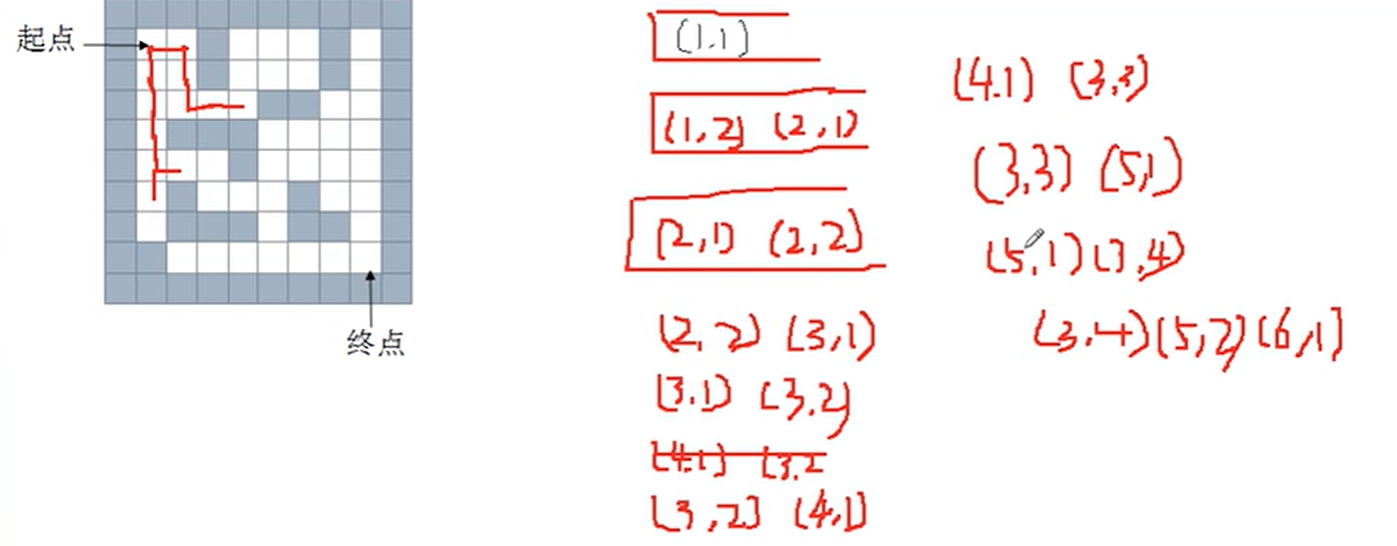 起点
终点
(1.1)
(1,2) (2,1)
(2,1) (2,2)
(2,2) (3,1)
(3.1) (3.2)
(4.1) (3.2
(3,2) (4,1)
(4.1) (3,3)
(3,3) (5,1)
(5,1) (3,4)
(3,4) (5,2) (6,1)